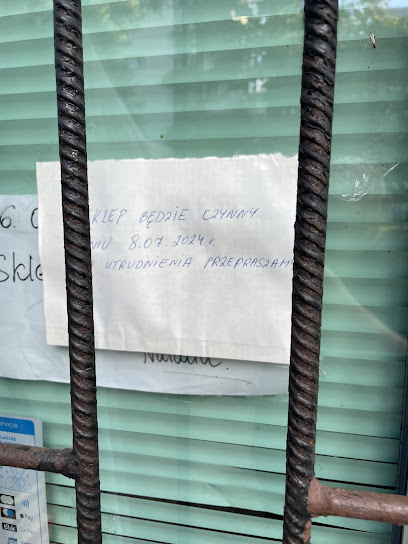 SKLEP BĘDZIE CZYNNY
DNIU 8.07.2024 r.
UTRUDNIENIA PRZEPRASZAMY
6.
Skle
service
Pay
Blik